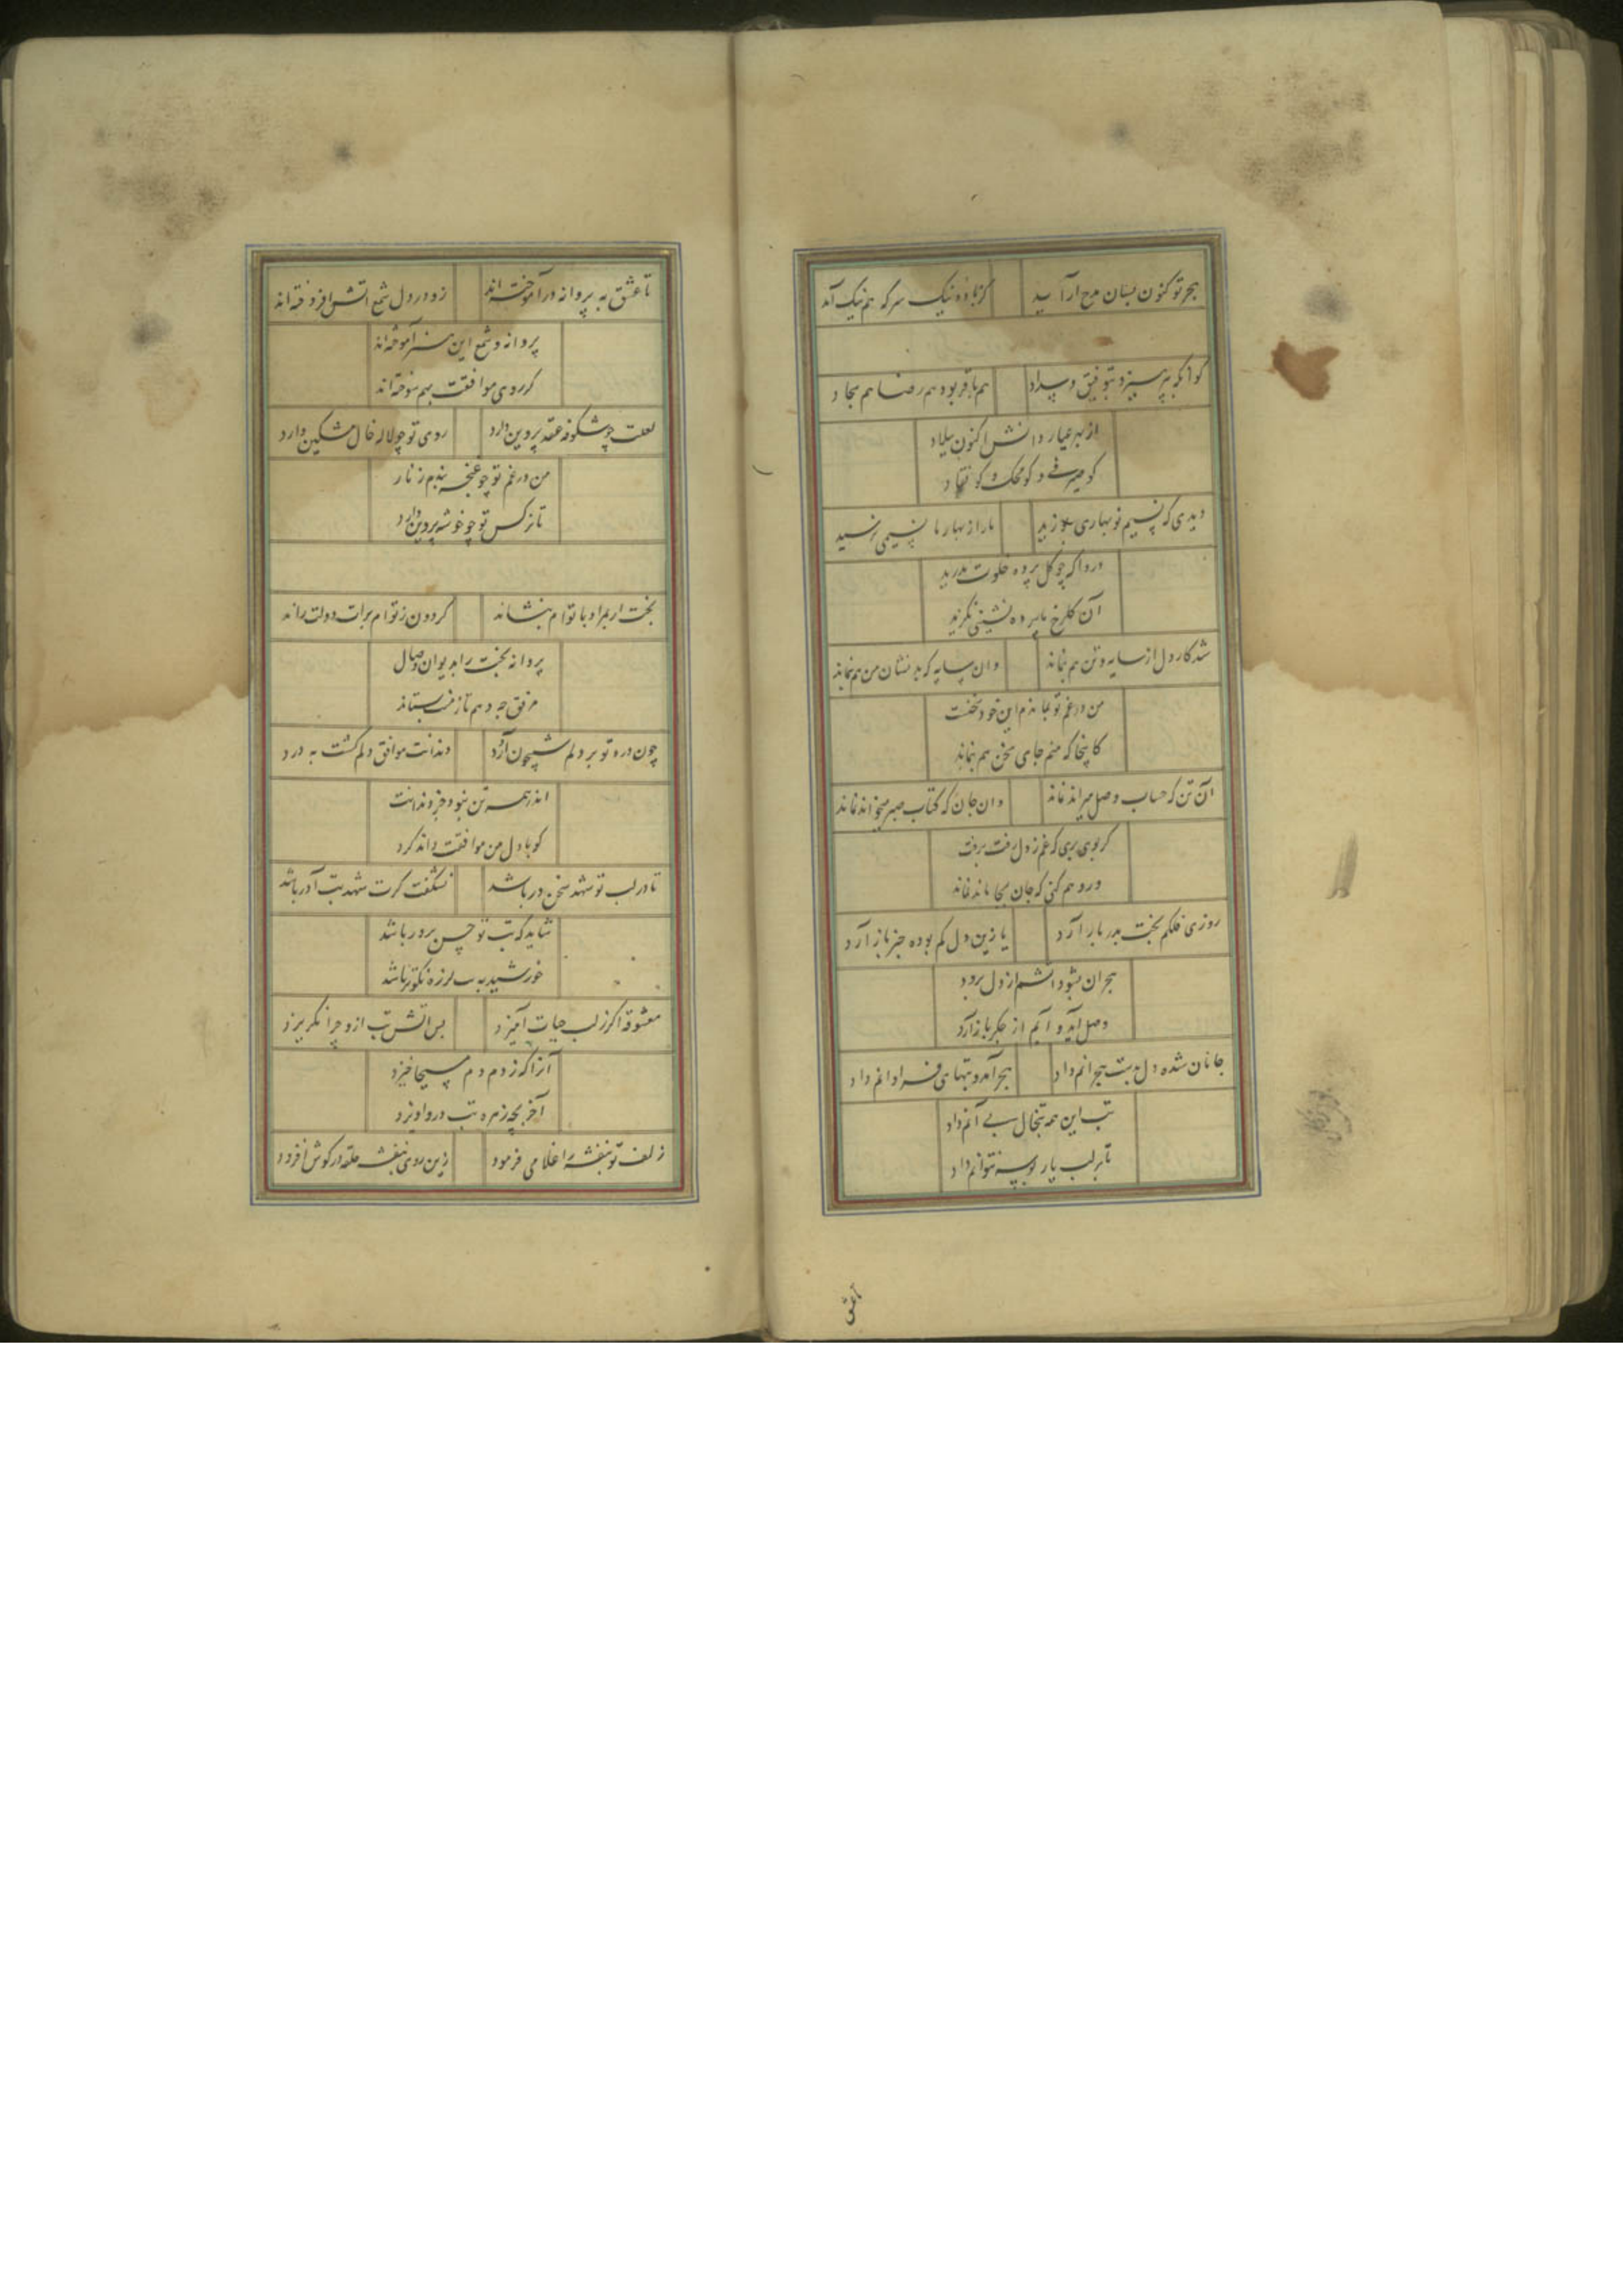 هجر تو کنون بسان مدح ار آید کز باده نیک سرکه هم نیک آید
کو آنکه بپرهیزد بتوفیق و سداد هم باقر بود هم رضا هم سجاد
از بهر عیار دانش اکنون ببلاد
کو صیرفی و کو محک و کو نقاد
دیدی که نسیم نوبهاری بوزید ما را ز بهار ما نسیمی نرسید
دردا که چو گل پرده خلوت بدرید
آن گلرخ ما پرده نشینی بگزید
شد کار دل از سایه و تن هم بنماند وان سایه که بد نشان من هم بنماند
من در غم تو نماندم این خود سخنست
کاینجا که منم جای سخن هم بنماند
آن تن که حساب وصل میراند نماند وان جان که کتاب صبر میخواند نماند
گر بوی بری که غم ز دل رفت برفت
ور وهم کنی که جان بجا ماند نماند
روزی فلکم بخت بدر باز آرد یا زین دل گم بوده خبر باز آرد
هجران بشود آتشم از دل ببرد
وصل آید و آبم از جگر باز آرد
جانان شد و دل بدست هجرانم داد هجر آمد و تبهای فراوانم داد
تب این همه تبخال پی آنم داد
تا بر لب یار بوسه نتوانم داد
تا عشق
تا عشق به پروانه درآموخته‌اند زو در دل شمع آتش افروخته‌اند
پروانه و شمع این هنر آموخته‌اند
کز روی موافقت بهم سوخته‌اند
لعلت چو شکوفه عقد پروین دارد روی تو چو لاله خال مشکین دارد
من در غم تو چو غنچه بندم زنار
تا نرگس تو چو خوشه پروین دارد
بخت ار بمراد با توام بنشاند گردون ز توام برات دولت راند
پروانه بخت را بدیوان وصال
مرفق چه دهم تا ز منت بستاند
چون درد تو بر دلم شبیخون آورد دندانت موافق دلم گشت به درد
اندر همه تن نبود جز دندانت
کو با دل من موافقت داند کرد
تا در لب تو شهد سخن ور باشد نشگفت گرت شهد تب آور باشد
شاید که تب تو حسن پرور باشد
خورشید به تب لرزه نکوتر باشد
معشوقه اگر ز لب حیات آمیزد پس آتش تب ازو چرا نگریزد
آنرا که ز دم دم مسیحا خیزد
آخر بچه زهره تب درو آویزد
زلف تو بنفشه را غلامی فرمود زین روی بنفشه حلقه در گوش افزود